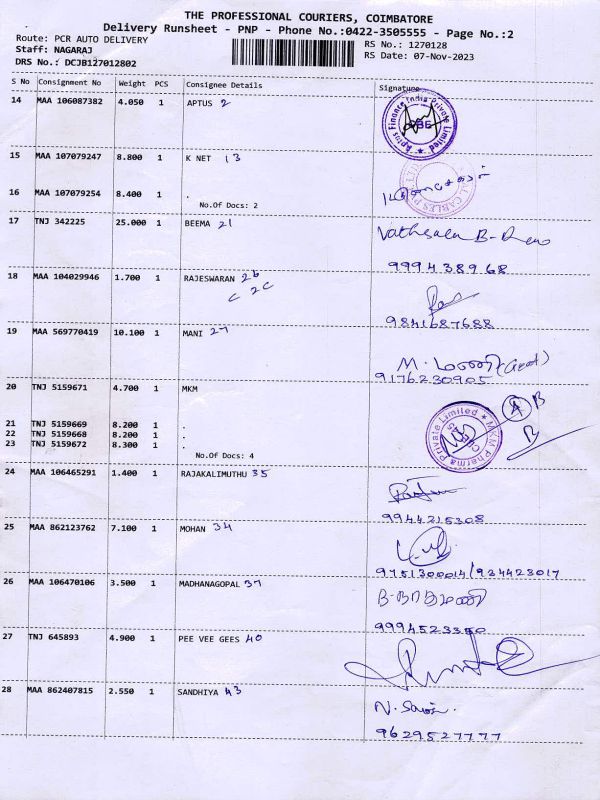 THE PROFESSIONAL COURIERS, COIMBATORE
Delivery Runsheet - PNP - Phone No.:0422-3505555 - Page No.:2
Route: PCR AUTO DELIVERY
RS No.: 1270128
Staff: NAGARAJ
RS Date: 07-Nov-2023
DRS No.: DCJB127012802
S No Consignment No Weight PCS Consignee Details Signature
14 MAA 106087382 4.050 1 APTUS 2
Aptus Finance India Private Limited
15 MAA 107079247 8.800 1 K NET 13
16 MAA 107079254 8.400 1 .
No.Of Docs: 2
17 TNJ 342225 25.000 1 BEEMA 21
999438968
18 MAA 104029946 1.700 1 RAJESWARAN 26
C 2C
9841687688
19 MAA 569770419 10.100 1 MANI 27
M. மணி
9176230905
20 TNJ 5159671 4.700 1 MKM
A B
B
MKM Pharma Private Limited
21 TNJ 5159669 8.200 1 .
22 TNJ 5159668 8.200 1 .
23 TNJ 5159672 8.300 1 .
No.Of Docs: 4
24 MAA 106465291 1.400 1 RAJAKALIMUTHU 35
9944215308
25 MAA 862123762 7.100 1 MOHAN 34
9751300014/934423017
26 MAA 106470106 3.500 1 MADHANAGOPAL 37
9994523350
27 TNJ 645893 4.900 1 PEE VEE GEES 40
28 MAA 862407815 2.550 1 SANDHIYA 43
9629527777